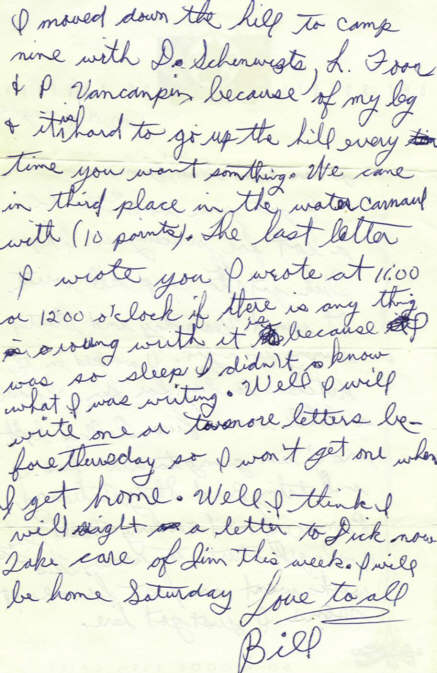 I moved down the hill to camp
nine with D. Schenwigts, L. Foor
& P Vancanpin because of my leg
& it is hard to go up the hill every
time you want somthing. We cane
in third place in the water carnaul
with (10 points). The last letter
I wrote you I wrote at 11:00
or 12:00 o'clock if there is any thing
wroung with it is because I
was so sleep I didn't know
what I was writing. Well I will
write one or two more letters be-
fore thursday so I won't get one when
I get home. Well I think I
will a letter to Dick now
Take care of Jim this week. I will
be home Saturday Love to all
Bill